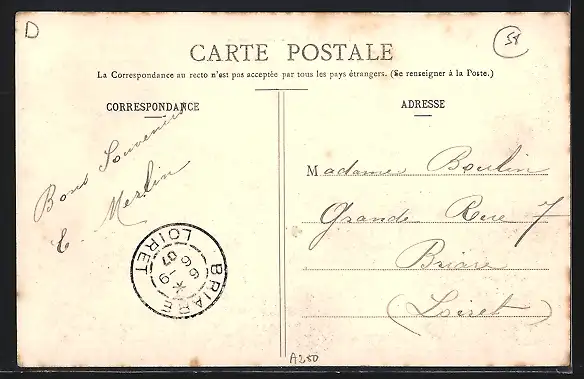 D
51
CARTE POSTALE
La Correspondance au recto n'est pas acceptée par tous les pays étrangers. (Se renseigner à la Poste.)
CORRESPONDANCE
Bons Souvenirs
E. Merlin
BRIARE
LOIRET
9
6
07
ADRESSE
Madame Boulin
Grande Rue 7
Briare
(Loiret)
A250